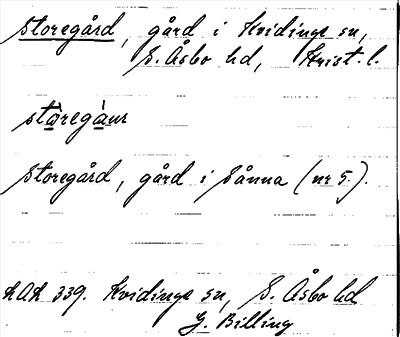 Storegård, gård i Kvidinge sn,
S. Åsbo hd, Krist. l.
Storegård, gård i Sånna (nr 5).
LAL 339. Kvidinge sn, S. Åsbo hd
G. Billing